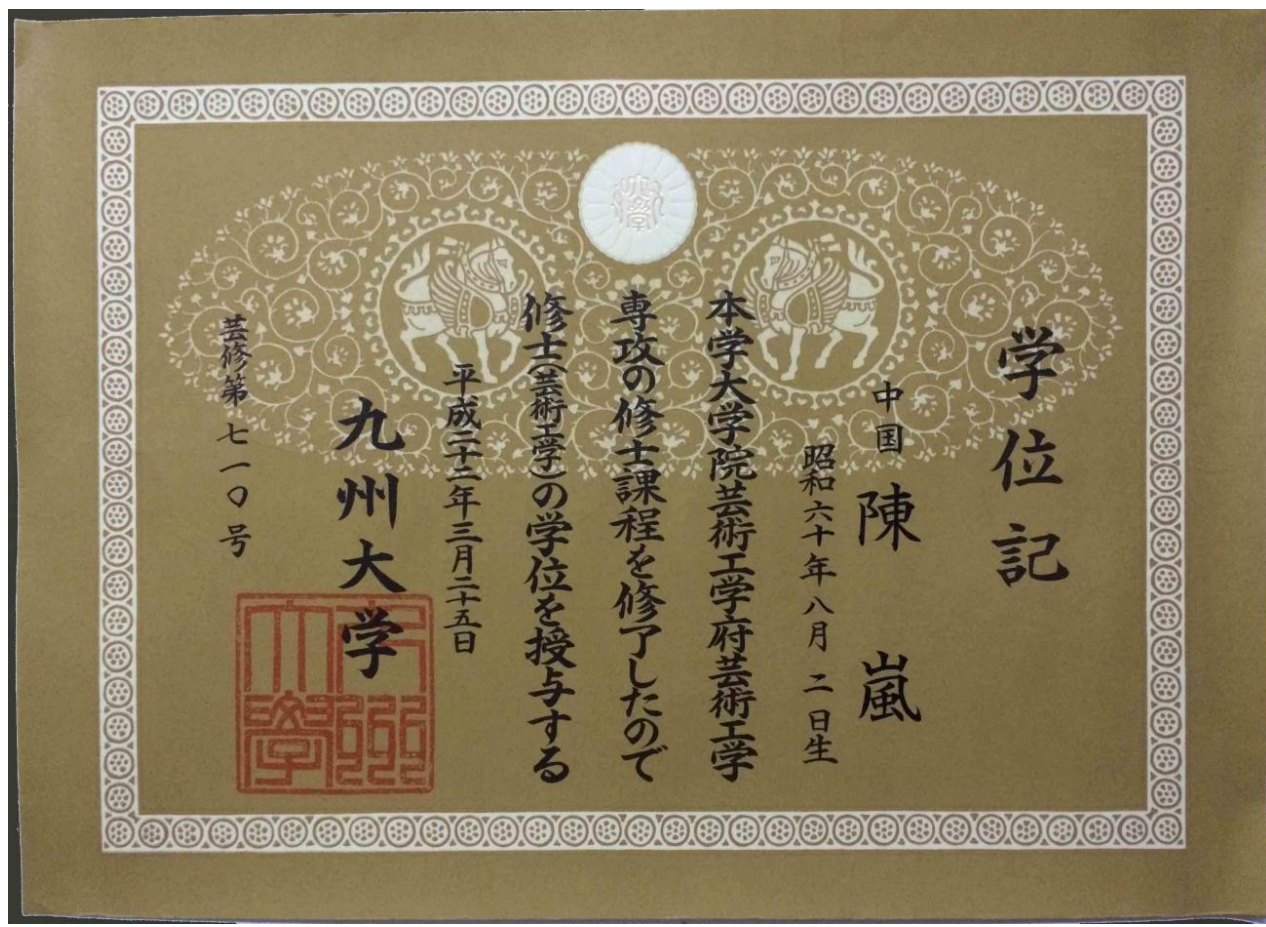 学位記
中国 陳 嵐
昭和六十年八月二日生
本学大学院芸術工学府芸術工学
専攻の修士課程を修了したので
修士(芸術工学)の学位を授与する
平成二十二年三月二十五日
九州大学
芸修第七一〇号
九州大學
大學